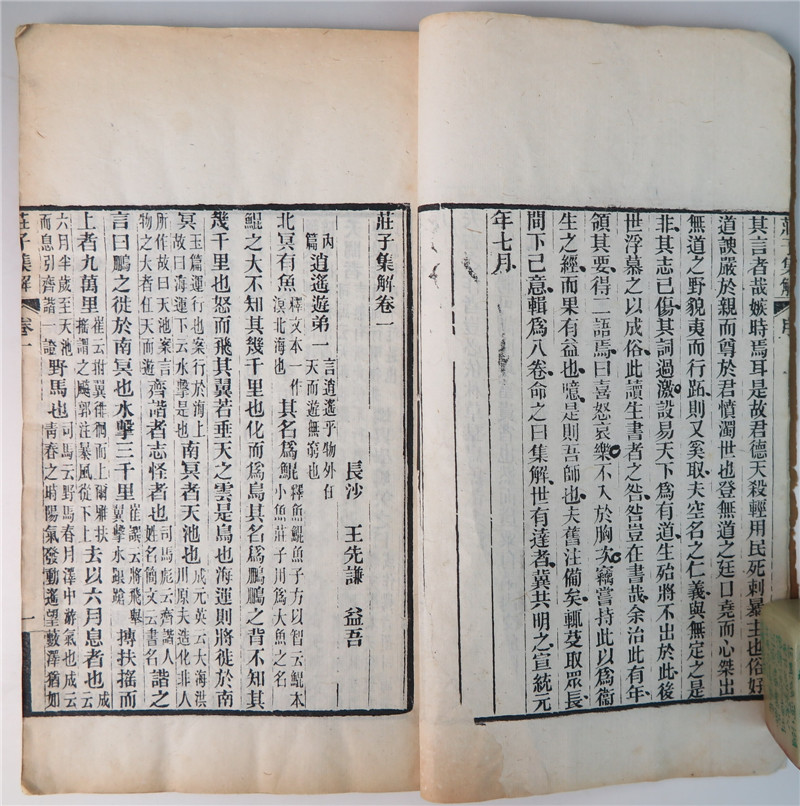 莊子集解 序
其言者哉嫉時焉耳是故君德天殺輕用民死刺暴主也俗好
道諛嚴於親而尊於君憤濁世也登無道之廷口堯而心桀出
無道之野貌夷而行跖則又奚取夫空名之仁義與無定之是
非其志已傷其詞過激設易天下爲有道生殆將不出於此後
世浮慕之以成俗此讀生書者之咎咎豈在書哉余治此有年
領其要得二語焉曰喜怒哀樂不入於胸次竊嘗持此以爲衞
生之經而果有益也噫是則吾師也夫舊注備矣輒芟取眾長
間下己意輯爲八卷命之曰集解世有達者冀共明之宣統元
年七月
莊子集解卷一
長沙 王先謙 益吾
內篇逍遙遊弟一言逍遙乎物外任天而遊無窮也
北冥有魚釋文本一作溟北海也其名爲鯤釋魚鯤魚子方以智云鯤本小魚莊子用爲大魚之名
鯤之大不知其幾千里也化而爲鳥其名爲鵬鵬之背不知其
幾千里也怒而飛其翼若垂天之雲是鳥也海運則將徙於南
冥玉篇運行也案行於海上故曰海運下云水擊是也南冥者天池也成元英云大海洪川原夫造化非人
所作故曰天池案言物之大者任天而遊齊諧者志怪者也司馬彪云齊諧人姓名簡文云書名諧之
言曰鵬之徙於南冥也水擊三千里崔譔云將飛舉翼擊水踉蹌摶扶搖而
上者九萬里崔云拊翼徘徊而上爾雅扶搖謂之飇郭注暴風從下上去以六月息者也成云
六月半歲至天池而息引齊諧一證野馬也司馬云野馬春月澤中游氣也成云青春之時陽氣發動遙望藪澤猶如
莊子集解 卷一 一